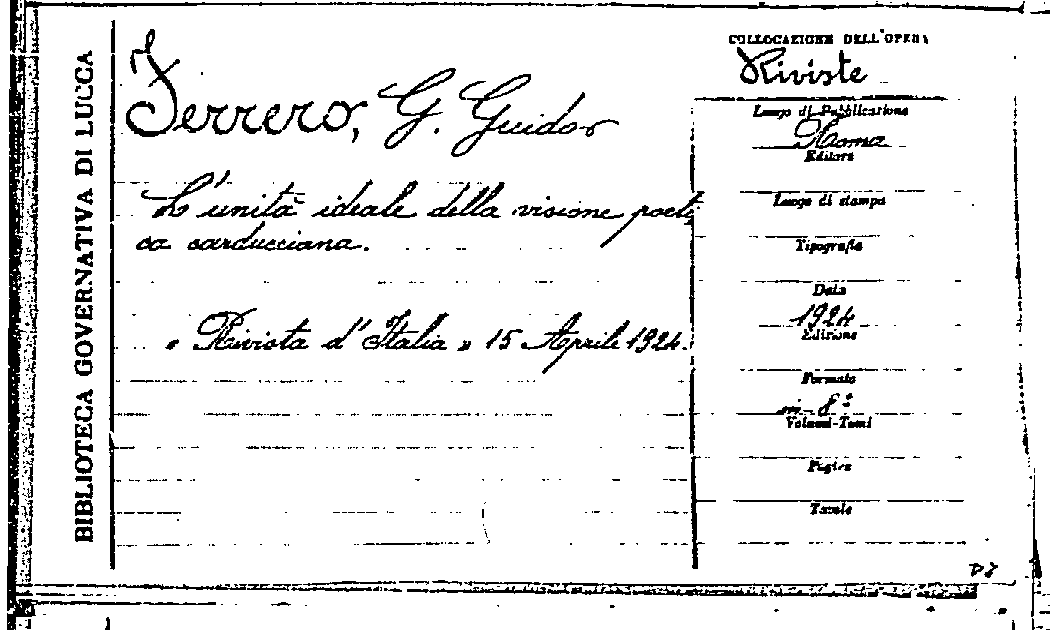 BIBLIOTECA GOVERNATIVA DI LUCCA
Ferrero, G. Guido
L'unità ideale della visione poeti
ca carducciana.
« Rivista d'Italia » 15 Aprile 1924.
COLLOCAZIONE DELL'OPERA
Riviste
Luogo di Pubblicazione
Roma
Editore
Luogo di stampa
Tipografia
Data
1924
Edizione
Formato
in-8°
Volumi-Tomi
Pagine
Tavole